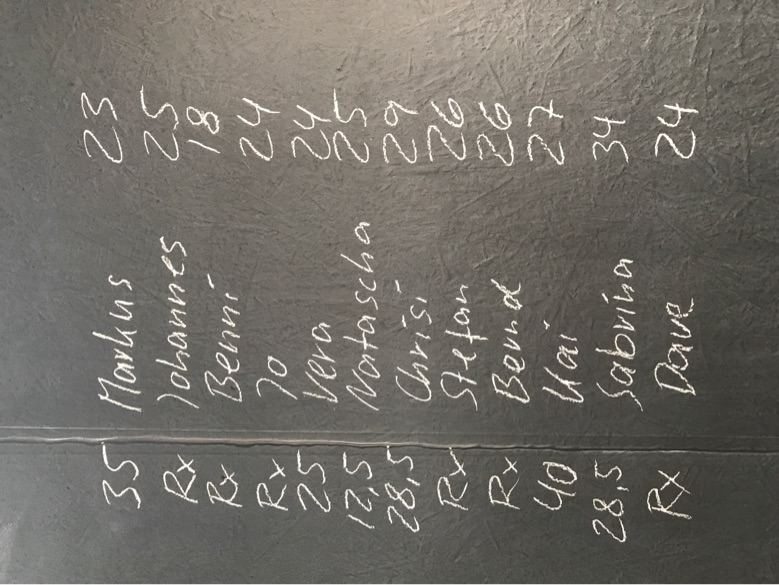 35 Markus 23
Rx Johannes 25
Rx Benni 18
Rx Jo 24
25 Vera 24
12,5 Natascha 25
28,5 Chrisi 29
Rx Stefan 26
Rx Bernd 26
40 Kai 27
28,5 Sabrina 34
Rx Dave 24